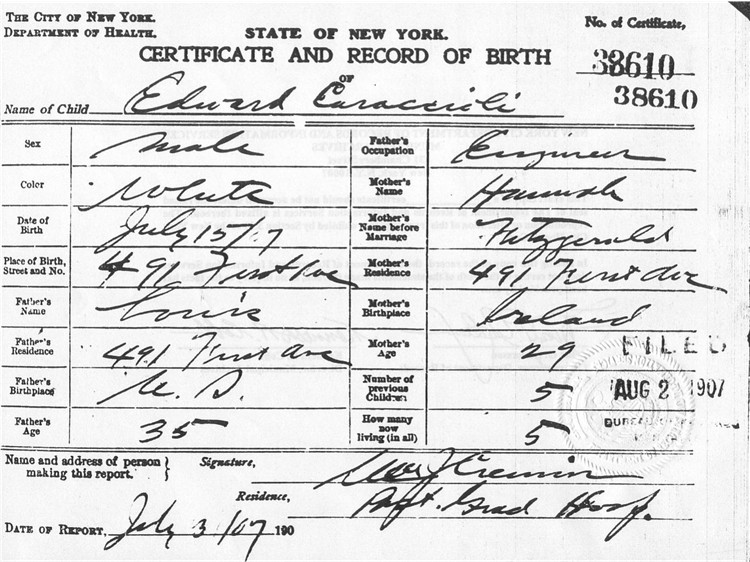 THE CITY OF NEW YORK.
DEPARTMENT OF HEALTH.
STATE OF NEW YORK.
No. of Certificate,
CERTIFICATE AND RECORD OF BIRTH
38610
38610
OF
Name of Child Edward Caraccioli
Sex male Father's Occupation Engineer
Color White Mother's Name Hannah
Date of Birth July 1 Mother's Name before Marriage Fitzgerald
Place of Birth, Street and No. 491 First Ave Mother's Residence 491 First Ave
Father's Name Louis Mother's Birthplace Ireland
Father's Residence 491 First Ave Mother's Age 29
FILED
Father's Birthplace U. S. Number of previous Children 5
AUG 2 1907
Father's Age 35 How many now living (in all) 5
Name and address of person making this report. Signature, Cremin
Residence, Post. Grad Hosp.
DATE OF REPORT, July 31/07 190